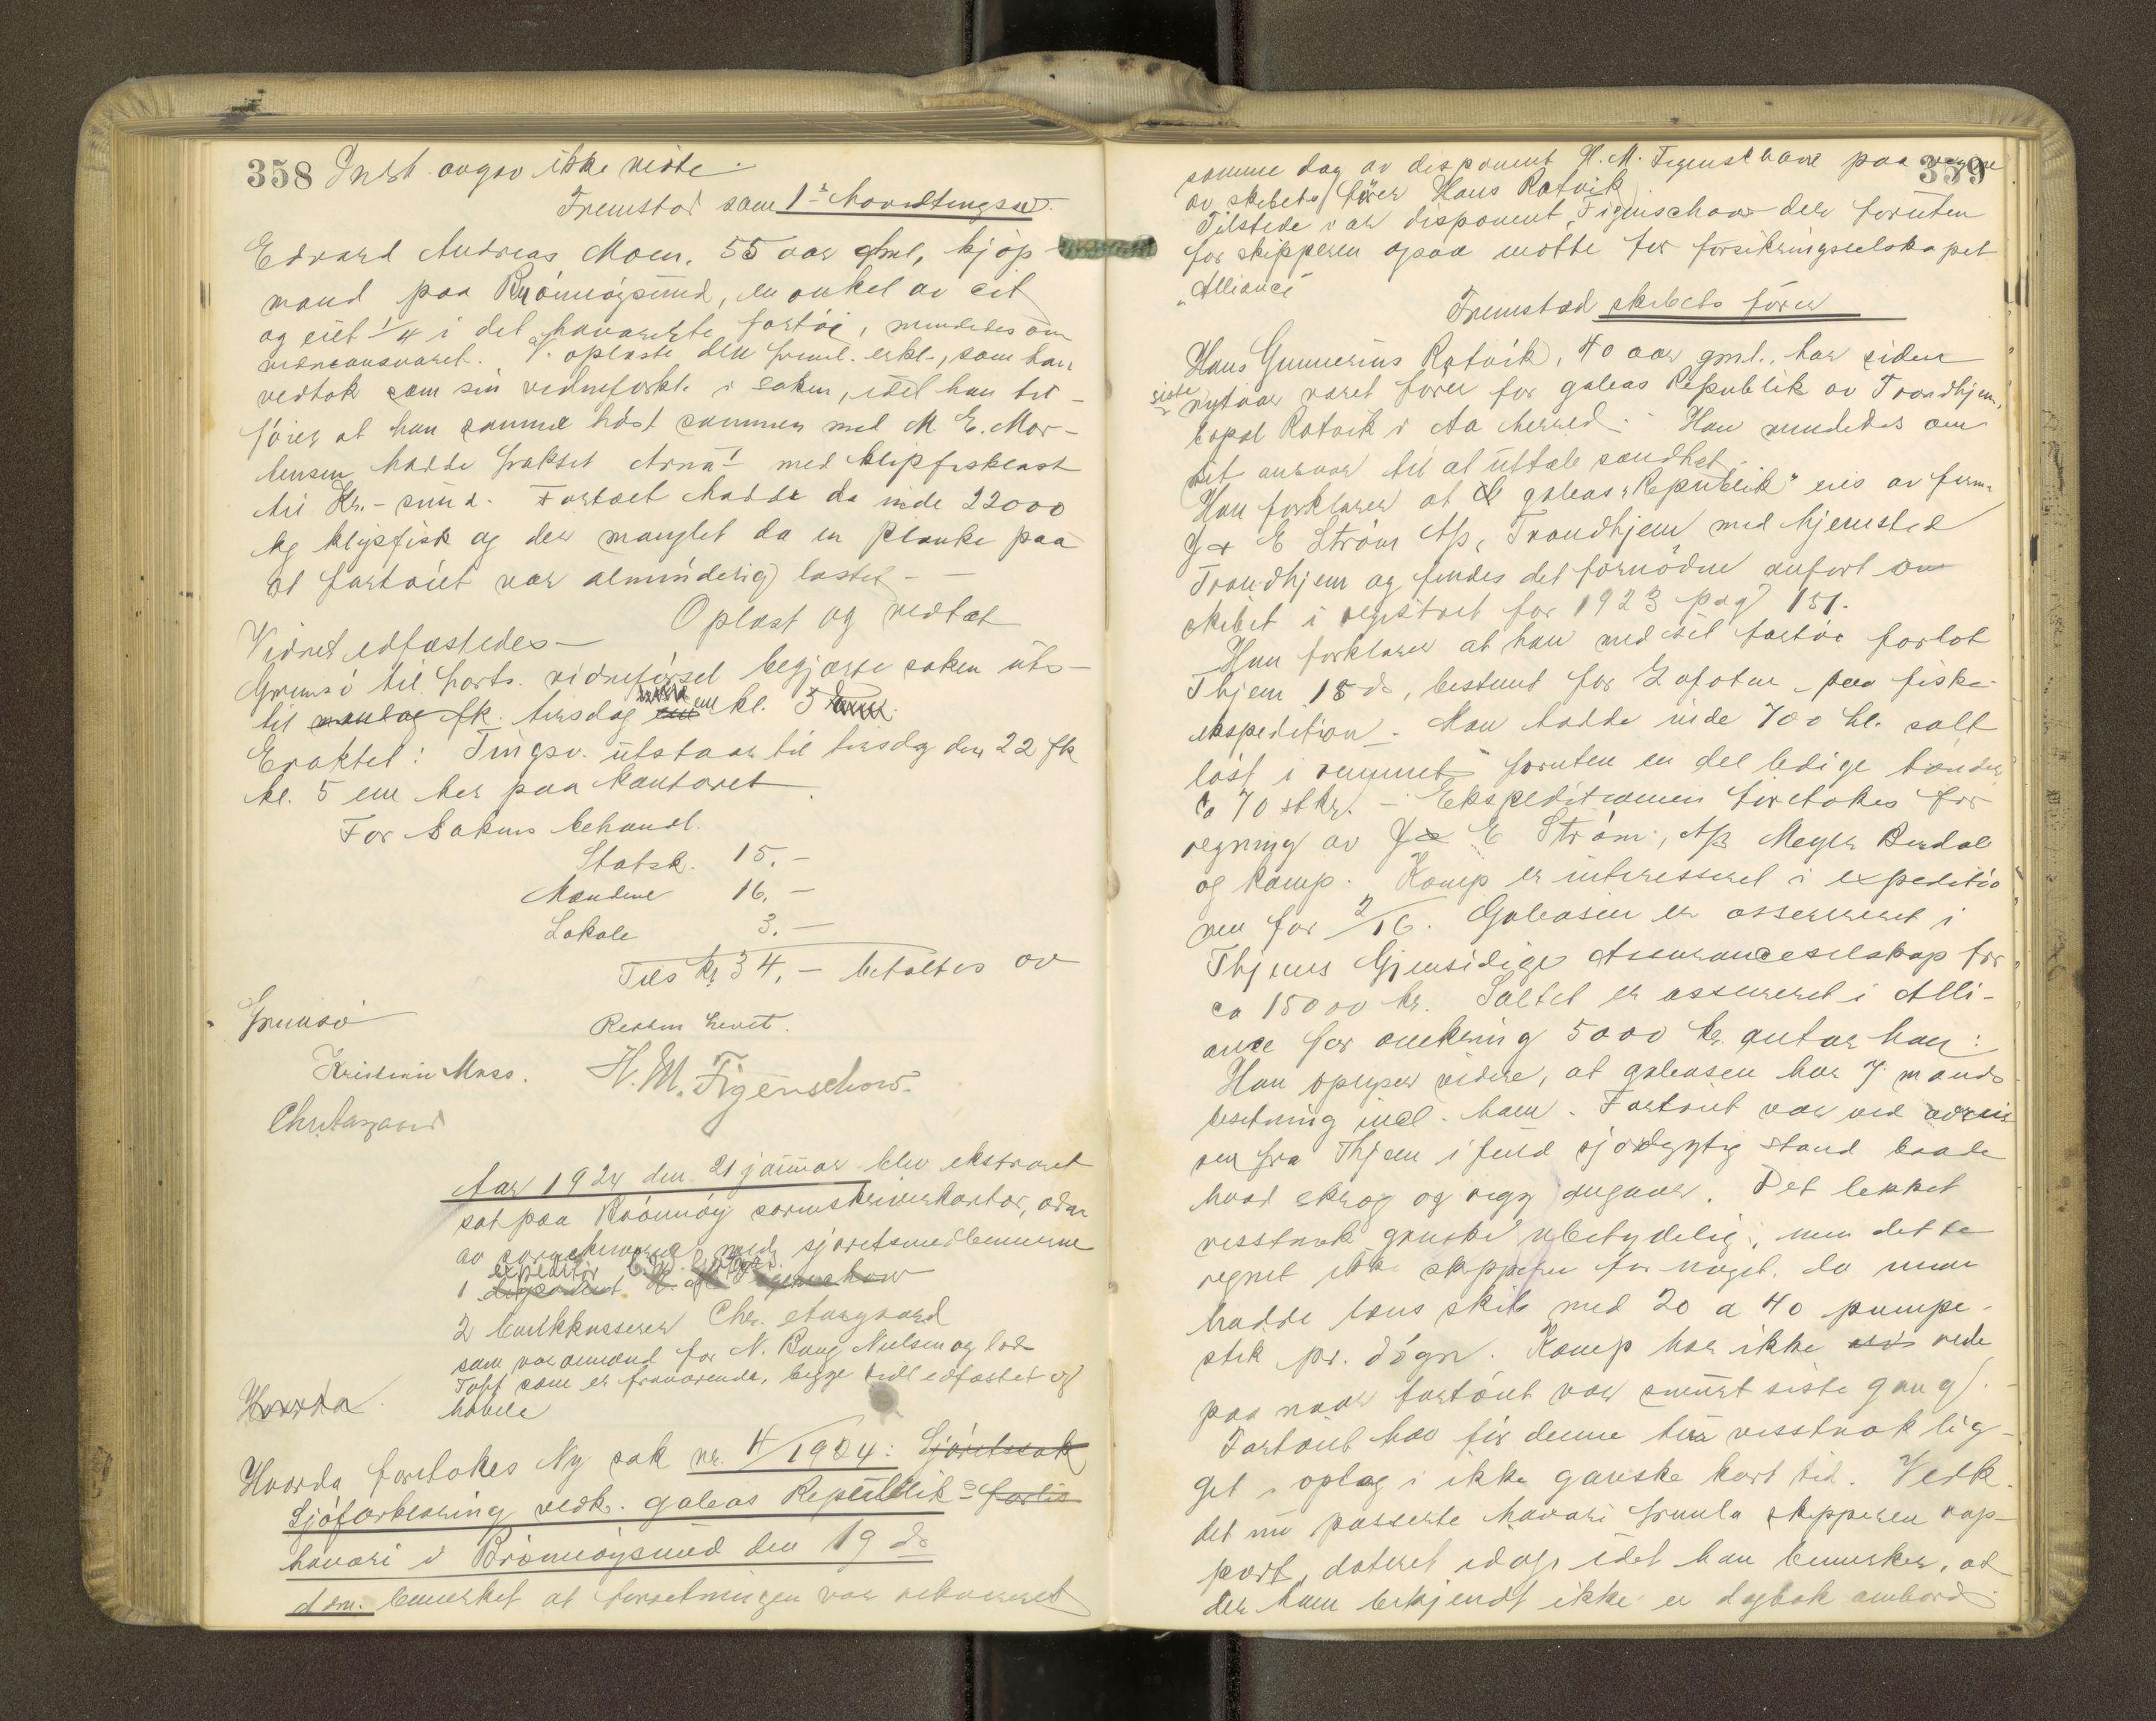 358 Intet angav ikke viste.
Fremstod som 1ste hovedtingsv.
Edvard Andreas Moen, 55 aar gml, kjøp-
mand paa Brønnøysund, en onkel av eit
og eiet 1/4 i det havarerte fartøi, mindedes om
vidneansvaret. V. oplæste den freml. erkl., som han
vedtok som sin vidneforkl. i saken, idet han til-
føier at han samme høst sammen med M. E. Mor-
tensen hadde fraktet Arna I med klipfisklast
til Kr.-sund. Fartøiet hadde da inde 22000
kg klipfisk og der manglet da en planke paa
at fartøiet var almindelig lastet - -
Oplæst og vedtat
Vidnet edfæstedes -
Grunsø til forts. vidneførsel begjærte saken uts-
til mandag fk. tirsdag em kl. 5
Eraktet: Tingsv. utstaar til tirsdag den 22 fk
kl. 5 em her paa kontoret.
For sakens behandl.
Statsk. 15.-
Mændene 16.-
Lokale 3.-
Tils kr 34.- betaltes av
Grunsø
Retten hevet.
Kristian Moss. H. M. Figenschow.
Chr. Aasgaard
Aar 1924 den 21 januar blev ekstraret
sat paa Brønnøy sorenskriverkontor, adm
av sorenskriveren med sjøretsmedlemmerne
expeditør
1 disponent H. M. Figenschow
2 bankkasserer Chr. Aasgaard
som varamænd for N. Bang Nielsen og lods
Toft som er fraværende, begge tidl edfæstet og
habile
Hvorda
Hvorda foretokes Ny sak nr. 4/1924: Sjøretssak
Sjøforklaring vedk. galeas Republik's forlis
havari i Brønnøysund den 19 ds
dom. bemerket at forretningen var rekvireret
359
samme dag av disponent H. M. Figenschow paa vegne
av skibets fører Hans Ratvik.
Tilstede var disponent Figenschow der foruten
for skipperen ogsaa møtte for forsikringsselskapet
"Alliance"
Fremstod skibets fører
Hans Gunnerius Ratvik, 40 aar gml., har siden
siste nytaar været fører for galeas Republik av Trondhjem,
bopæl Ratvik i Aa herred. Han mindedes om
sit ansvar til at uttale sandhet.
Han forklarer at galeas "Republik" eies av firma
J & E Strøm A/S, Trondhjem med hjemsted
Trondhjem og findes det fornødne anført om
skibet i registret for 1923 pag 151.
Han forklarer at han med sit fartøi forlot
Thjem 15 ds, bestemt for Lofoten paa fiske-
ekspedition. Man hadde inde 700 hl. salt
løst i rummet foruten en del ledige tønder
ca 70 stkr. - Ekspeditionen foretokes for
regning av J & E Strøm, A/S Meyer Berdal
og komp. Komp er interesseret i expeditio
nen for 2/16. Galeasen er assureret i
Thjems Gjensidige Assuranceselskap for
ca 15000 kr. Saltet er assureret i Alli-
ance for omkring 5000 kr. antar han:
Han opgiver videre, at galeasen har 7 mands
besetning incl. ham. Fartøiet var ved avrei
sen fra Thjem i fuld sjødygtig stand baade
hvad skrog og rigg angaaer. Det lekket
visstnok ganske ubetydelig, men dette
regnet ikke skipperen for noget, da man
hadde læns skib med 20 a 40 pumpe-
stik pr. døgn. Komp har ikke rede
paa naar fartøiet var smurt siste gang.
Fartøiet har før denne tur visstnok lig-
get i oplag i ikke ganske kort tid. Vedk.
det nu passerte havari fremla skipperen rap-
port, dateret idag idet han bemerker, at
der ham bekjendt ikke er dagbok ombord